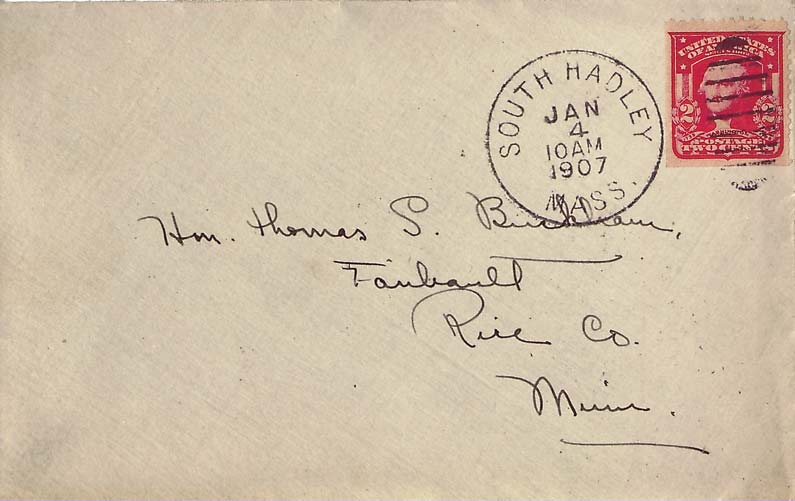 SOUTH HADLEY
JAN
4
10AM
1907
MASS.
UNITED STATES
OF AMERICA
2 2
WASHINGTON
POSTAGE
TWO CENTS
Hon. Thomas S. Buckham,
Faribault
Rice Co.
Minn.